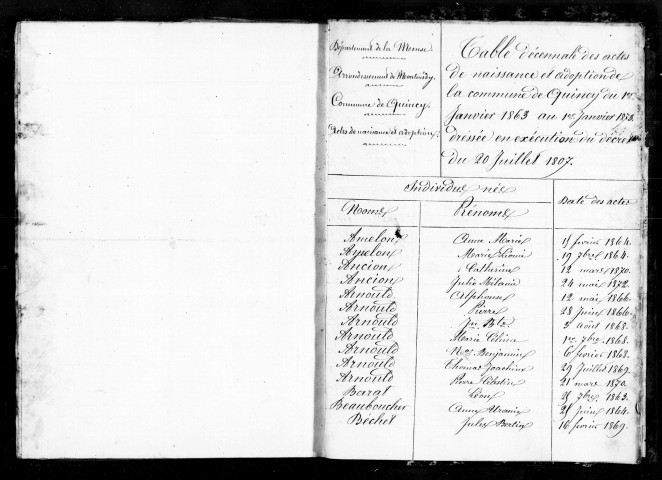 Département de la Meuse.
Arrondissement de Montmédy.
Commune de Quincy.
Actes de naissance et adoption.
Table décennale des actes
de naissance et adoption de
la commune de Quincy du 1er
Janvier 1863 au 1er Janvier 1873.
dressée en exécution du décret
du 20 Juillet 1807.
Individus nés
Noms Prénoms Date des actes
Amelon Anna Marie février 1864.
Amelon Marie 19 7bre 1864.
Ancion Catherine 12 mars 1870.
Ancion Julie Mélanie 24 mai 1872.
Arnould Alphonse 12 mai 1866.
Arnould Pierre 28 Juin 1866.
Arnould Jn Bte août 1868.
Arnould Maria Célina 1er 7bre 1868.
Arnould Benjamin 6 février 1868.
Arnould Thomas Joachim 29 Juillet 1869.
Arnould Pierre Célestin 21 mars 1870.
Barrat Léon 7bre 1863.
Beauboucher Anna Juin 1864.
Béchet Jules 16 février 1869.